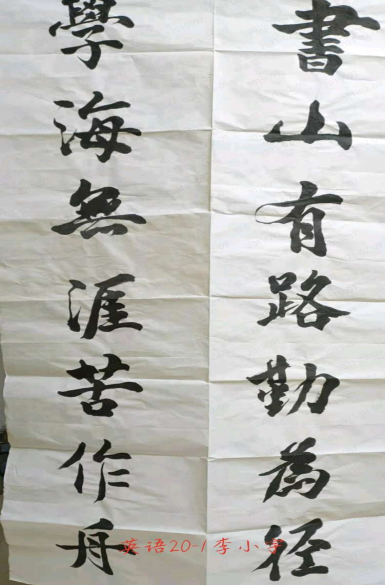 書山有路勤為径
學海無涯苦作舟
英语20-1李小